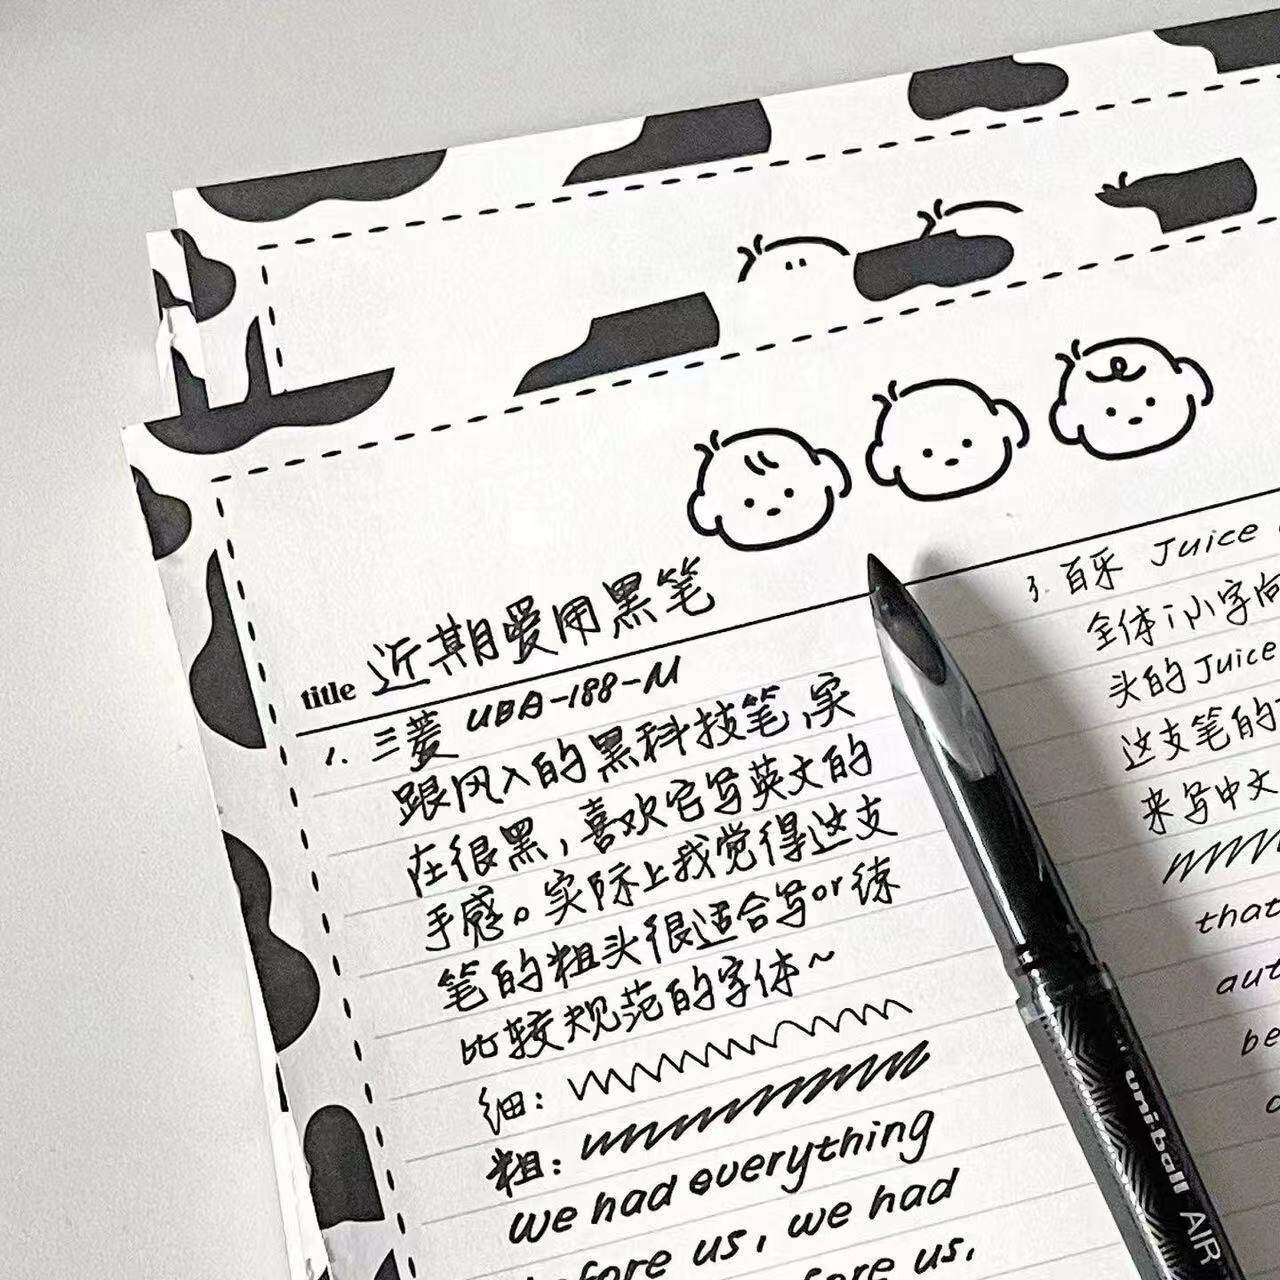 title 近期爱用黑笔
1. 三菱 UBA-188-M
跟风入的黑科技笔,实
在很黑,喜欢它写英文的
手感。实际上我觉得这支
笔的粗头很适合写or练
比较规范的字体~
细:
粗:
we had everything
before us, we had
fore us,
3. 百乐 Juice
全体i小字向
头的Juice
这支笔的
来写中文
that
aut
be
uniball AIR